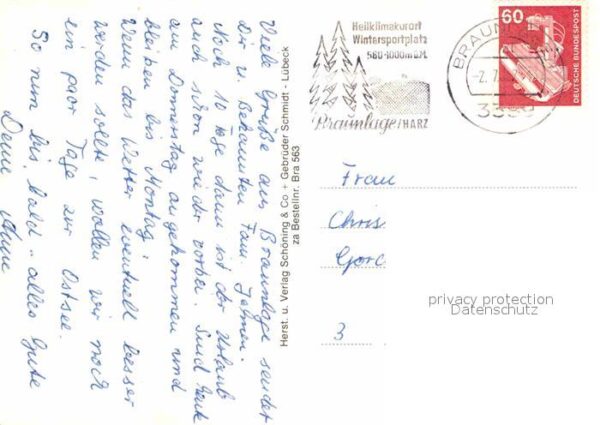 Viele Grüße aus Braunlage sendet
Dir u. Bekannten Fam.
Noch 10 Tage dann ist der Urlaub
auch schon wieder vorbei. Sind heute
am Donnerstag angekommen und
bleiben bis Montag.
Wenn das Wetter eventuell besser
werden sollte, wollen wir noch
ein paar Tage zur Ostsee.
So nun bis bald - alles Gute
Deine
Herst. u. Verlag Schöning & Co + Gebrüder Schmidt - Lübeck
za Bestellnr. Bra 563
Heilklimakurort
Wintersportplatz
560-1000m ü.M.
Braunlage/HARZ
BRAUNLAGE
-2.7.
60
DEUTSCHE BUNDESPOST
Frau
Chris
Gorc
3
privacy protection
Datenschutz